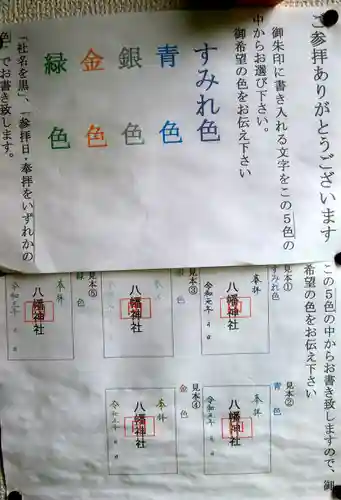 ご参拝ありがとうございます
御朱印に書き入れる文字をこの5色の
中からお選び下さい。
御希望の色をお伝え下さい
すみれ色
青色
銀色
金色
緑色
「社名を黒」、「参拝日・奉拝をいずれかの
色」でお書き致します。
この5色の中からお書き致しますので、御
希望の色をお伝え下さい
見本①
すみれ色
奉拝
八幡神社
令和元年 月 日
見本③
銀色
奉拝
八幡神社
見本⑤
緑色
奉拝
八幡神社
令和元年 月 日
見本②
青色
奉拝
八幡神社
令和元年 月 日
見本④
金色
奉拝
八幡神社
令和元年 月 日